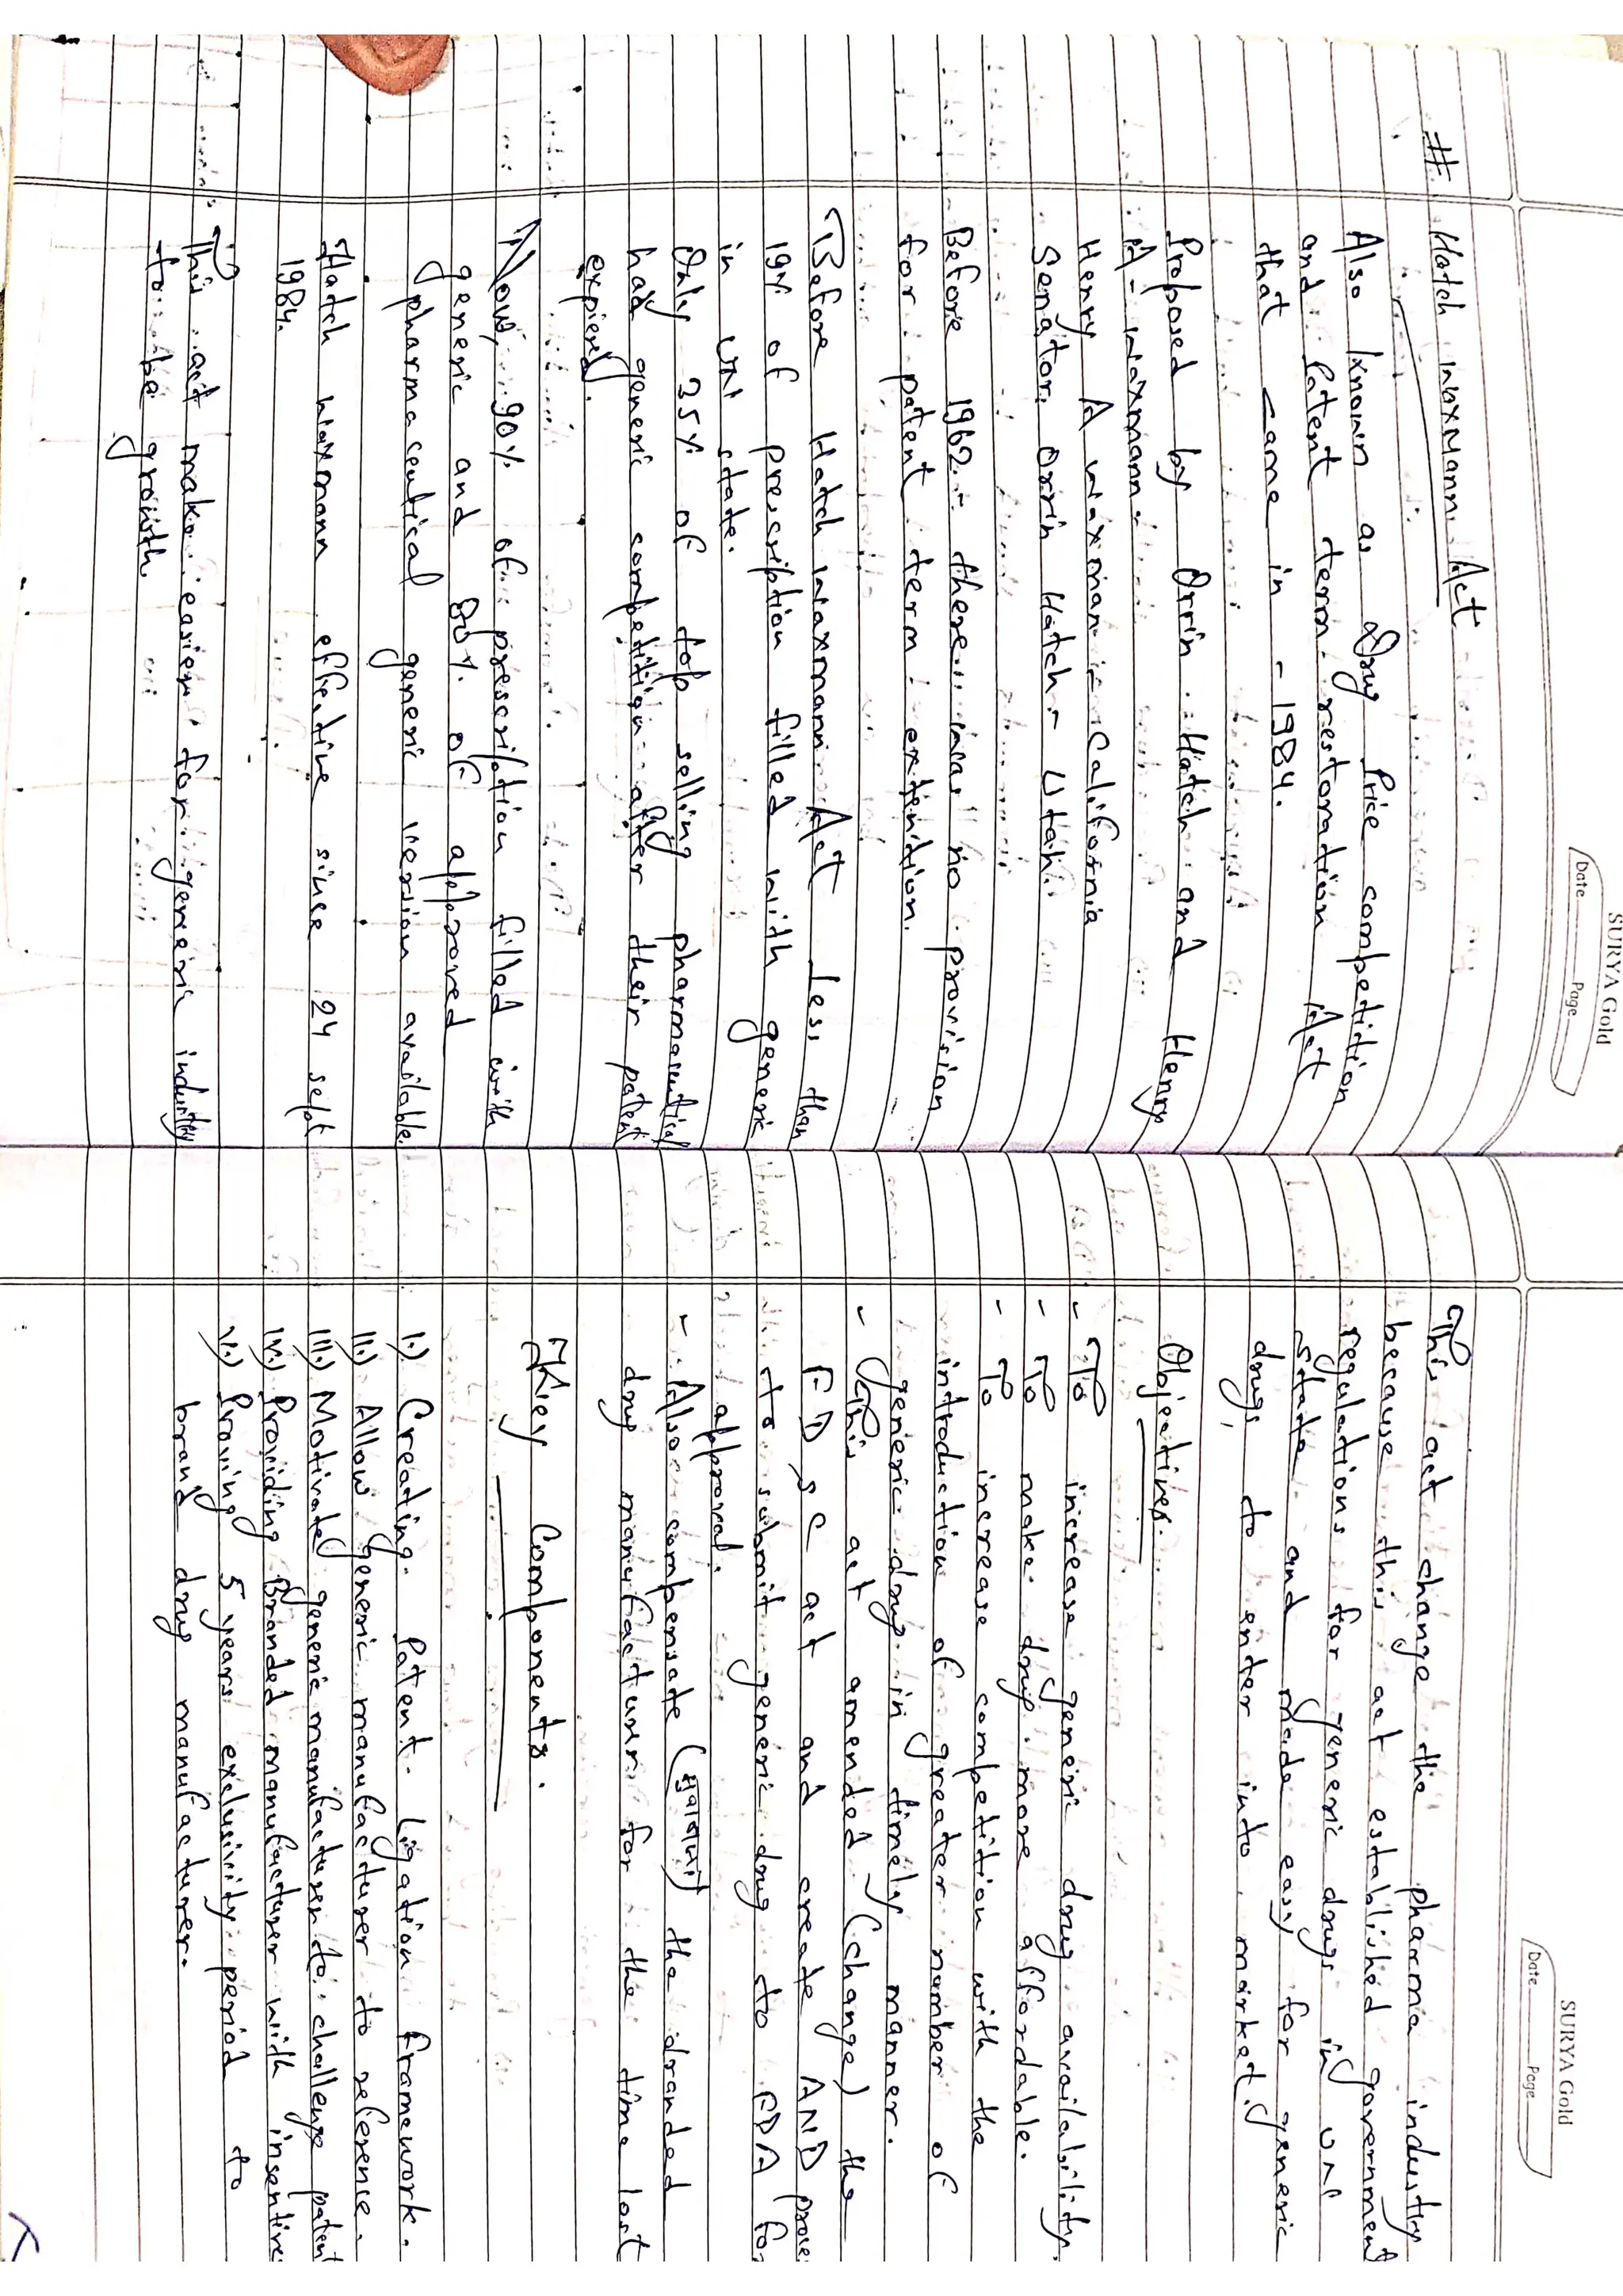 SURYA Gold
Date Page
# Hatch Waxmann Act
Also known as Drug Price competition
and Patent term restoration Act
that came in - 1984.
Proposed by Orrin Hatch and Henry
A- Waxmann
Henry A waxman - California
Senator Orrin Hatch - Utah.
Before 1962 - there was no provision
for patent term extention.
Before Hatch waxmann Act less than
19% of prescription filled with generic
in state.
Only 35% of top selling pharmaceutical
had generic competition after their patent
expiered.
Now, 90% of prescription filled with
generic and 80% of approved
pharmaceutical generic version available.
Hatch waxmann effective since 24 sept
1984.
This act make easier for generic industry
to be growth
SURYA Gold
Date Page
This act change the pharma industry
because this act established government
regulations for generic drugs in
state and made easy for generic
drugs to enter into market.
Objectives.
- To increase generic drug availability.
- To make drug more affordable.
- To increase competition with the
introduction of greater number of
generic drug in timely manner.
- This act amended (change) the
FD & C act and create AND
to submit generic drug to FDA for
approval.
- Also compensate the branded
drug manufacturer for the time lost
Key Components.
I.) Creating Patent Ligation framework.
II.) Allow generic manufacturer to reference.
III.) Motivated generic manufacturer to challenge patent
IV.) Providing Branded manufacturer with insentive
V.) Proving 5 years exclusivity period to
brand drug manufacturer.